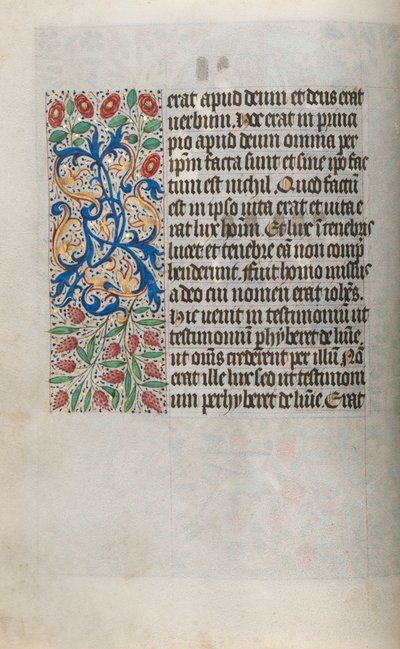 erat apud deum et deus erat
uerbum. Hoc erat in princi
pio apud deum omnia per
ip̄m facta sunt et sine ip̄o fac
tum est nichil. Quod factū
est in ipso uita erat et uita e
rat lux hoīm. Et lux ī tenebris
lucet et tenebre eā non comp̄
henderunt. Fuit homo missus
a deo cui nomen erat ioh̄es.
Hic uenit in testimoniū ut
testimonium phyberet de luīe
ut oīns crederent per illū. Nō
erat ille lux sed ut testimoni
um perhyberet de luīe. Erat